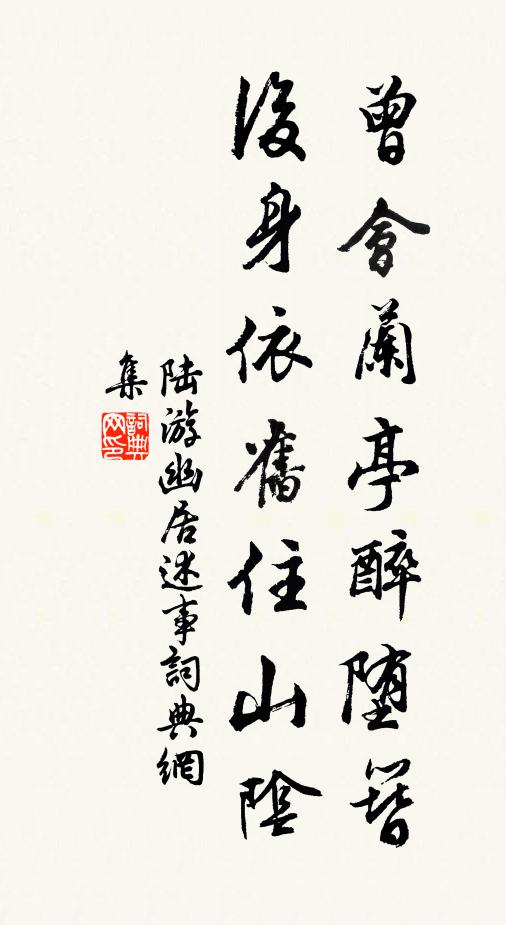 曾會蘭亭醉墮簪
後身依舊住山陰
陸游幽居述事詞典網
集
詞典
網印